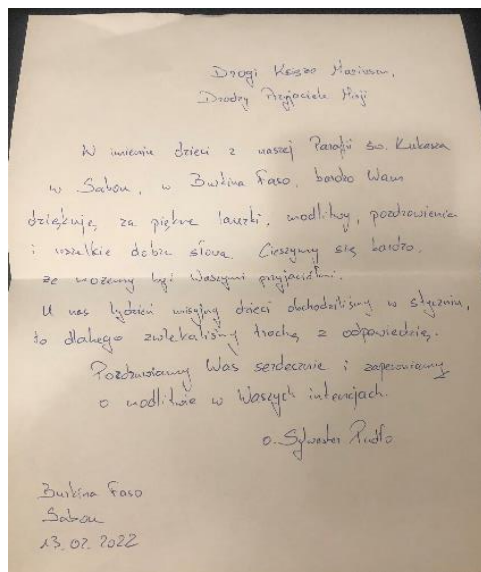 Drogi Księże Mariuszu,
Drodzy Przyjaciele Misji
W imieniu dzieci z naszej Parafii św. Łukasza
w Sabou, w Burkina Faso, bardzo Wam
dziękuję za piękne laurki, modlitwy, pozdrowienia
i wszelkie dobre słowa. Cieszymy się bardzo,
że możemy być Waszymi przyjaciółmi.
U nas tydzień misyjny dzieci obchodziliśmy w styczniu,
to dlatego zwlekaliśmy trochę z odpowiedzią.
Pozdrawiamy Was serdecznie i zapewniamy
o modlitwie w Waszych intencjach.
o. Sylwester Pudło
Burkina Faso
Sabou
13.02.2022